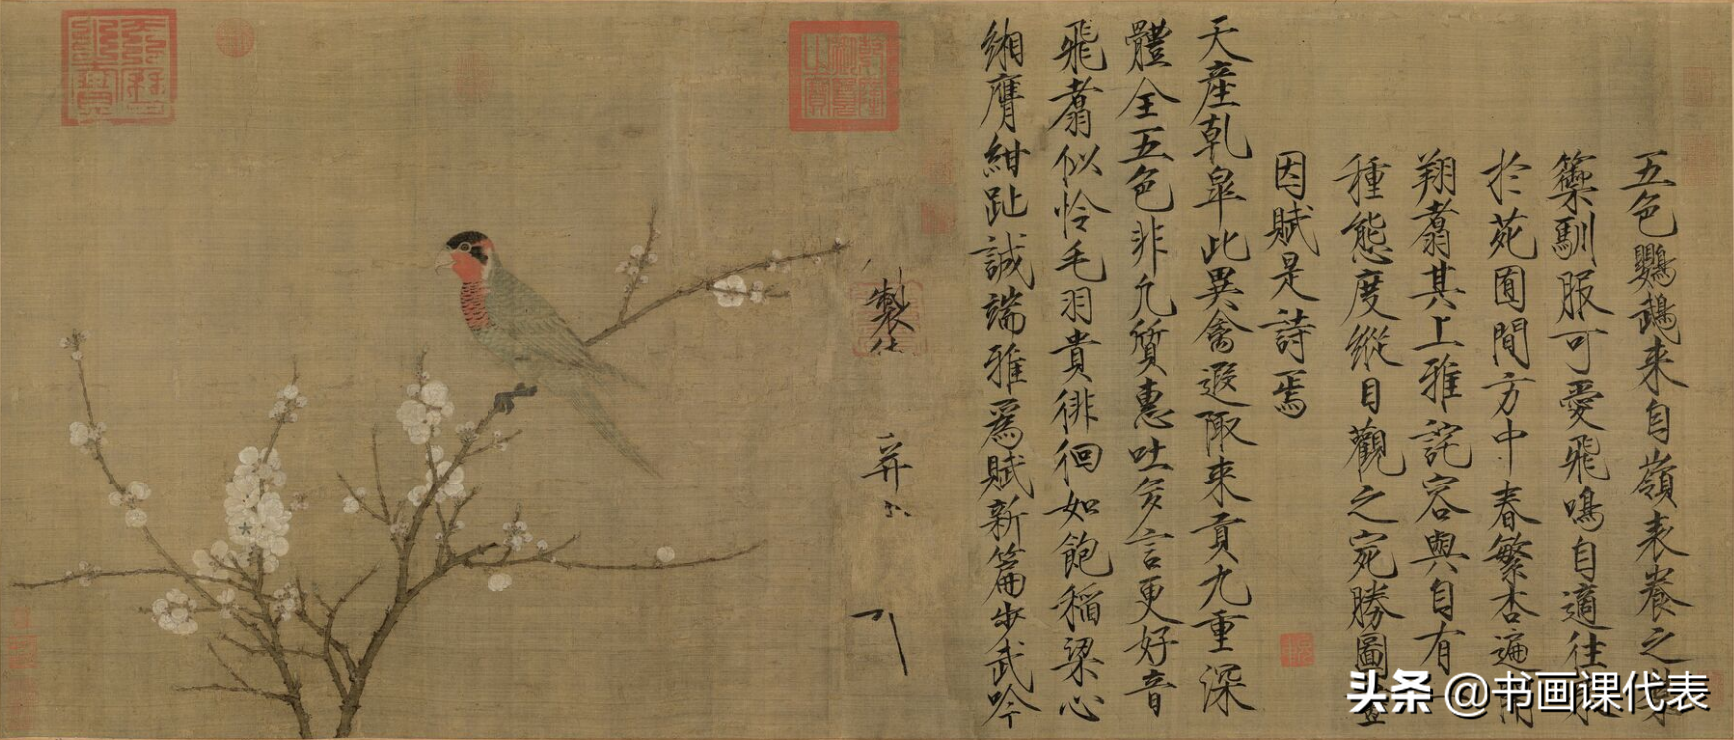 五色鸚鵡来自嶺表養之禁
籞馴服可愛飛鳴自適往来
於苑囿間方中春繁杏遍開
翔翥其上雅詫容與自有一
種態度縱目觀之宛勝圖畫
因賦是詩焉
天産乾皐此異禽遐陬来貢九重深
體全五色非凡質惠吐多言更好音
飛翥似憐毛羽貴徘徊如飽稲粱心
緗膺紺趾誠端雅為賦新篇步武吟
製
头条 @书画课代表